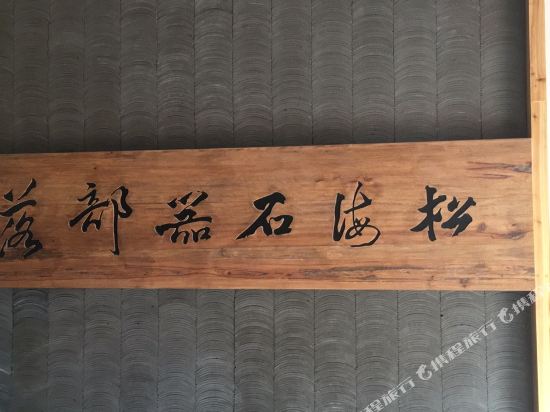 松海石器部落
携程旅行
携程旅行